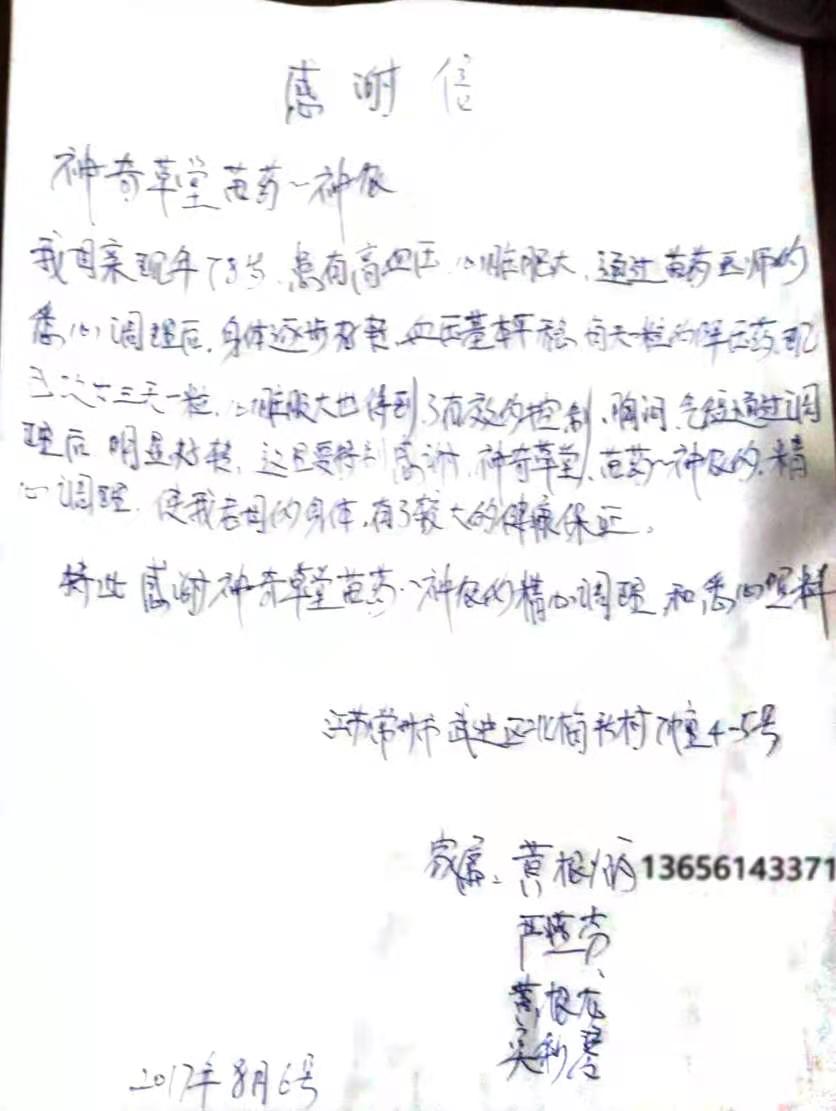 感谢信
神奇草堂苗药一神农
我母亲现年78岁.患有高血压.心脏肥大.通过苗药医师的
悉心调理后.身体逐步好转.血压基本平稳.每天一粒的降压药.现
已 三天一粒.心脏肥大也得到了有效的控制.胸闷.气短通过调
理后明显好转.这里要特别感谢.神奇草堂.苗药一神农的.精
心调理.使我老母的身体.有了较大的健康保证。
特此感谢神奇草堂苗药一神农的精心调理和悉心照料
江苏常州市武进区 新村 4-5号
家属:黄根炳13656143371
严
黄根
2017年8月6号